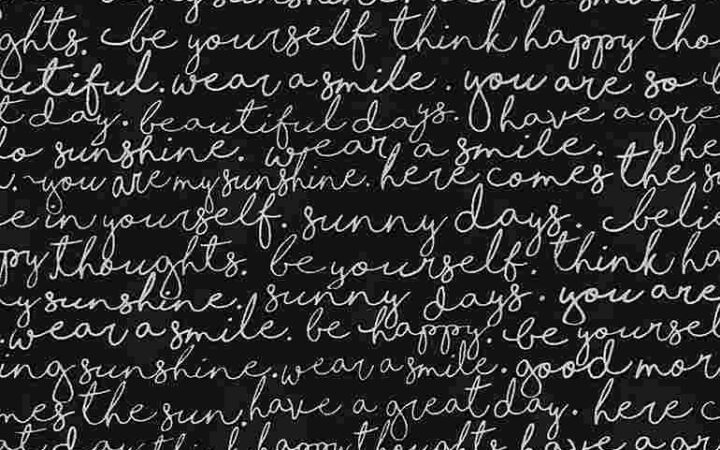 my sunshine.
ghts. be yourself think happy tho
utiful. wear a smile. you are so b
t day. beautiful days. have a gre
lo sunshine. wear a smile. he
. you are my sunshine. here comes the s
e in yourself. sunny days. beli
py thoughts. be yourself. think ha
y sunshine. sunny days. you are
. wear a smile. be happy. be yoursel
ing sunshine. wear a smile. good mor
mes the sun. have a great day. here c
at day. think happy thoughts. have a gr